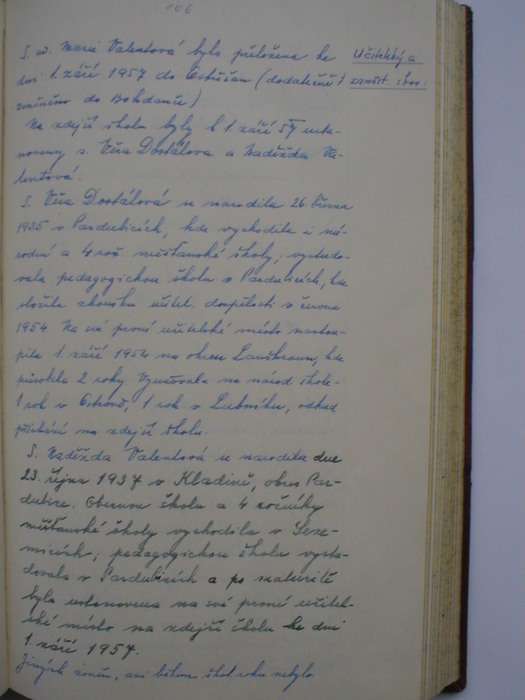 106
S. uč. Marie Valentová byla přeložena ke
dni 1. září 1957 do (dodatečně
změněno do Bohdanče)
Učitelský a
zaměst. sbor:
Na zdejší školu byly k 1. září 57 usta-
noveny s. Věra Dostálová a Naděžda Va-
lentová.
S. Věra Dostálová se narodila 26. března
1935 v Pardubicích, kde vychodila i ná-
rodní a 4 roč. měšťanské školy, vystudo-
vala pedagogickou školu v Pardubicích, kde
složila zkoušku učitel. dospělosti v červnu
1954 Na své první učitelské místo nastou-
pila 1. září 1954 na okrese Lanškroun, kde
působila 2 roky Vyučovala na národ. škole-
1 rok v Ostrově, 1 rok v Lubníku, odkud
přichází na zdejší školu.
S. Naděžda Valentová se narodila dne
23. října 1937 v Kladině, okres Par-
dubice. Obecnou školu a 4 ročníky
měšťanské školy vychodila v Seze-
micích; pedagogickou školu vystu-
dovala v Pardubicích a po maturitě
byla ustanovena na své první učitel-
ské místo na zdejší školu ke dni
1. září 1957.
Jiných změn, ani během škol. roku nebylo